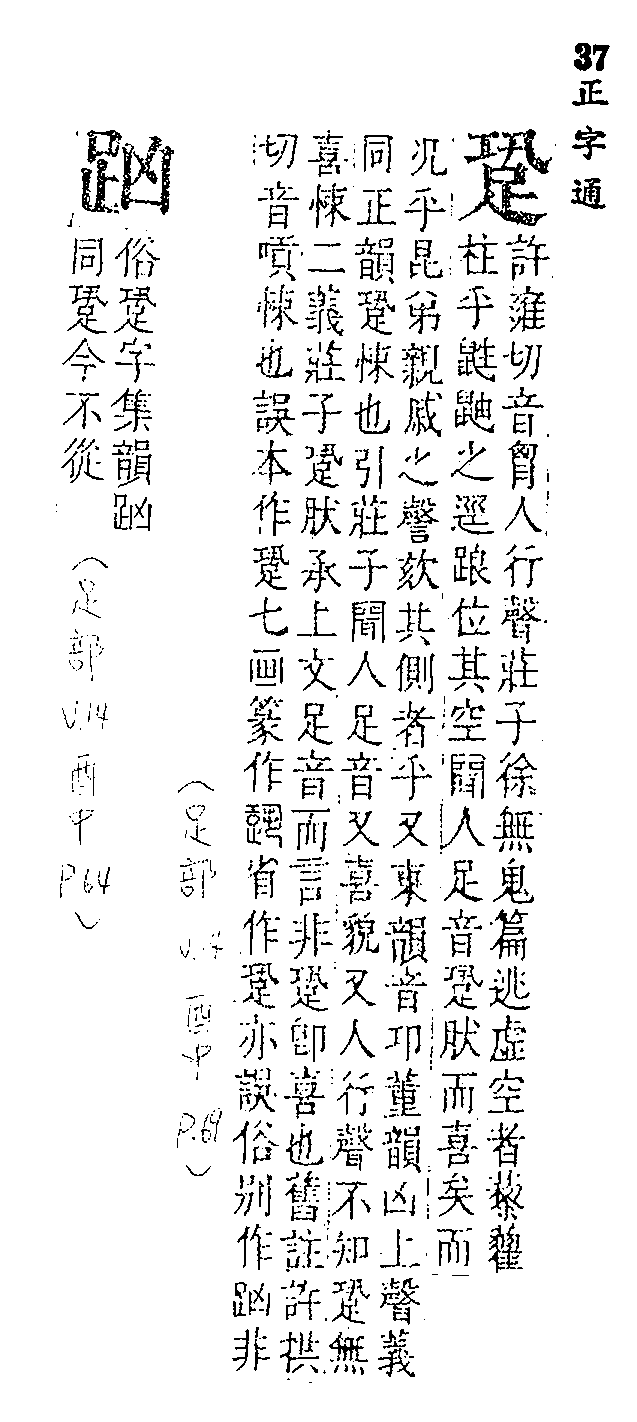 37 正字通
跫
許雍切音胷人行聲莊子徐無鬼篇逃虛空者藜藋
柱乎鼪鼬之逕踉位其空聞人足音跫肰而喜矣而
况乎昆弟親戚之謦欬其側者乎又東韻音邛董韻凶上聲義
同正韻跫悚也引莊子聞人足音又喜貌又人行聲不知跫無
喜悚二義莊子跫肰承上文足音而言非跫卽喜也舊註許拱
切音嗊悚也誤本作跫七画篆作省作跫亦誤俗别作跼非
(足部 V.14 酉中 P.69)
俗跫字集韻
同跫今不從
(足部 V.14 酉中 P.64)